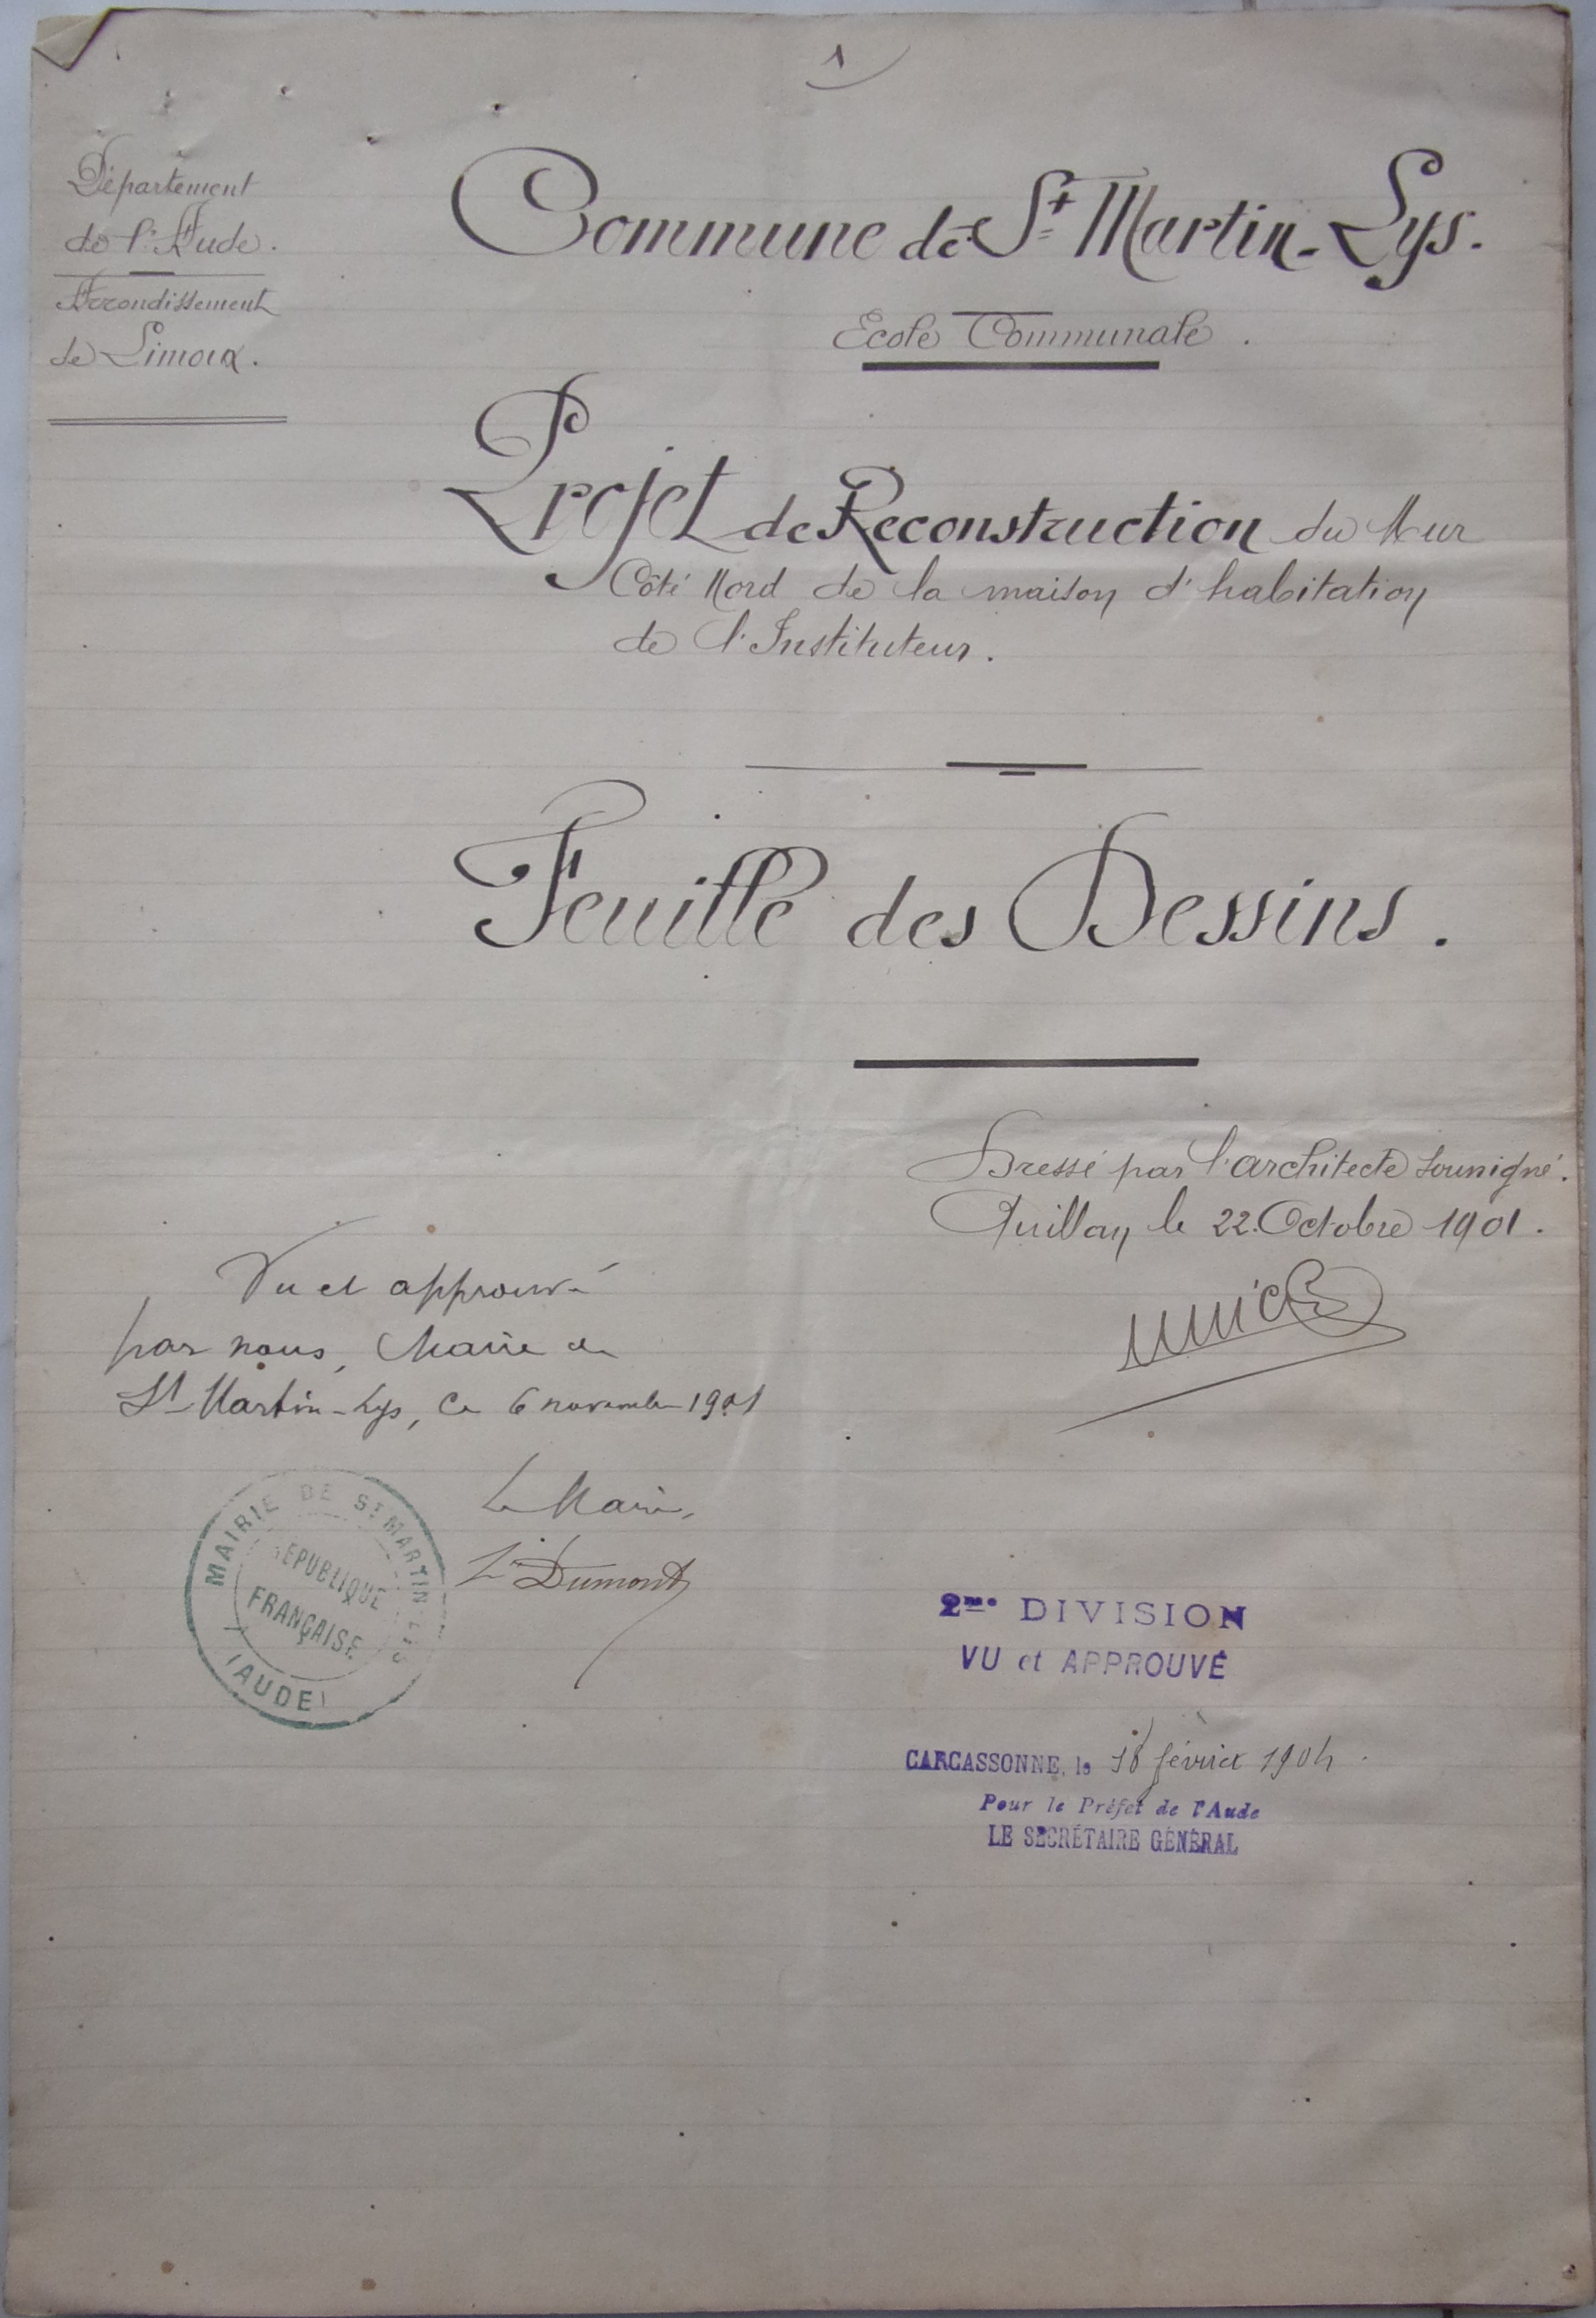 1
Département
de l'Aude.
Arrondissement
de Limoux.
Commune de St Martin-Lys.
Ecole Communale.
Projet de Reconstruction du Mur
Côté Nord de la maison d'habitation
de l'Instituteur.
Feuille des Dessins.
Dressé par l'architecte
Quillan le 22 Octobre 1901.
Vu et approuvé
par nous, Maire de
St Martin-Lys, ce 6 novembre 1901
Le Maire,
Dumont
MAIRIE DE ST MARTIN LYS
RÉPUBLIQUE
FRANÇAISE
(AUDE)
2me DIVISION
VU et APPROUVÉ
CARCASSONNE, le février 1904.
Pour le Préfet de l'Aude
LE SECRÉTAIRE GÉNÉRAL